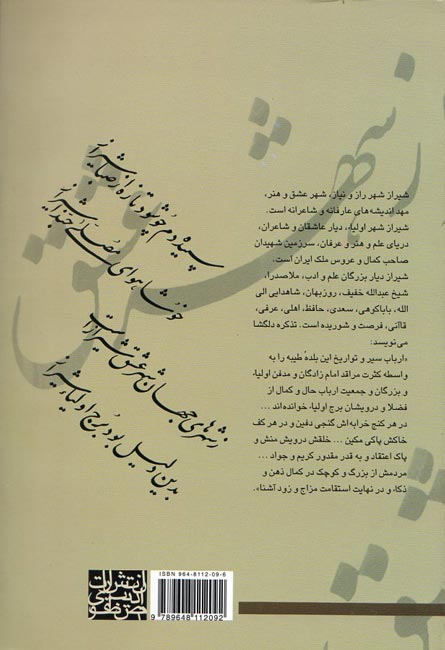 شیراز شهر راز و نیاز، شهر عشق و هنر،
مهد اندیشه‌های عارفانه و شاعرانه است.
شیراز شهر اولیاء، دیار عاشقان و شاعران،
دریای علم و هنر و عرفان، سرزمین شهیدان
صاحب کمال و عروس ملک ایران است.
شیراز دیار بزرگان علم و ادب، ملاصدرا،
شیخ عبدالله خفیف، روزبهان، شاهدایی الی
الله، باباکوهی، سعدی، حافظ، اهلی، عرفی،
قاآنی، فرصت و شوریده است. تذکره دلگشا
می‌نویسد:
«ارباب سیر و تواریخ این بلدهٔ طیبه را به
واسطه کثرت مراقد امام زادگان و مدفن اولیاء
و بزرگان و جمعیت ارباب حال و کمال از
فضلا و درویشان برج اولیاء، خوانده‌اند ...
در هر کنج خرابه‌اش گنجی دفین و در هر کف
خاکش پاکی مکین ... خلقش درویش منش و
پاک اعتقاد و به قدر مقدور کریم و جواد ...
مردمش از بزرگ و کوچک در کمال ذهن و
ذکاء و در نهایت استقامت مزاج و زود آشنا».
سپیده دم چو شود تازه از صبا شیراز
خوشا هوای مصلی
ز شهرهای جهان شهر عشق شیراز است
بدین دلیل بود برج اولیاء شیراز
شهر عشق
انتشارات
ISBN 964-8112-09-6
9 789648 112092